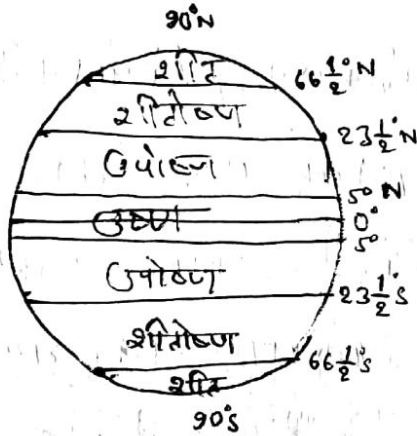 90°N
शीत
66 1/2° N
शीतोष्ण
23 1/2° N
उपोष्ण
5° N
उष्ण
0°
5°
उपोष्ण
23 1/2° S
शीतोष्ण
66 1/2° S
शीत
90°S